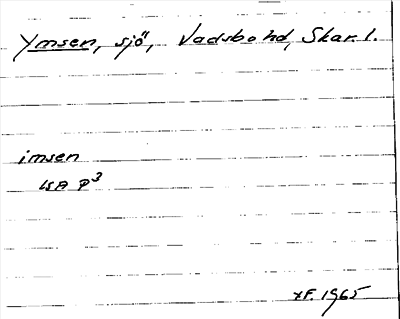 Ymsen, sjö, Vadsbo hd, Skar. l.
imsen
LSA P³
1965